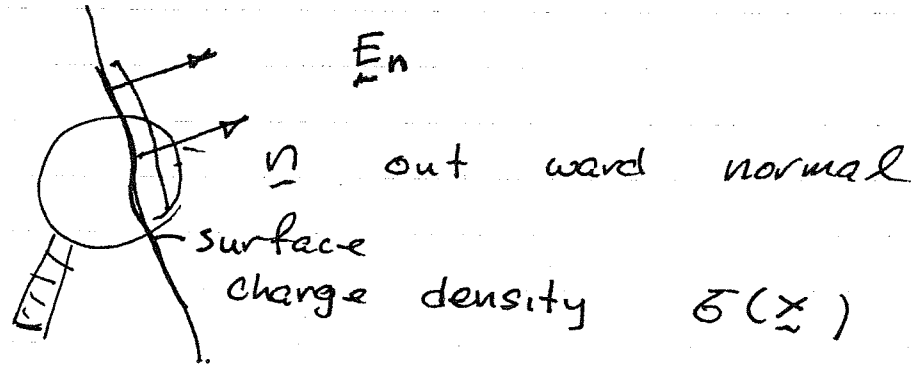 E̲n
n̲ out ward normal
surface
charge density σ(x̰)